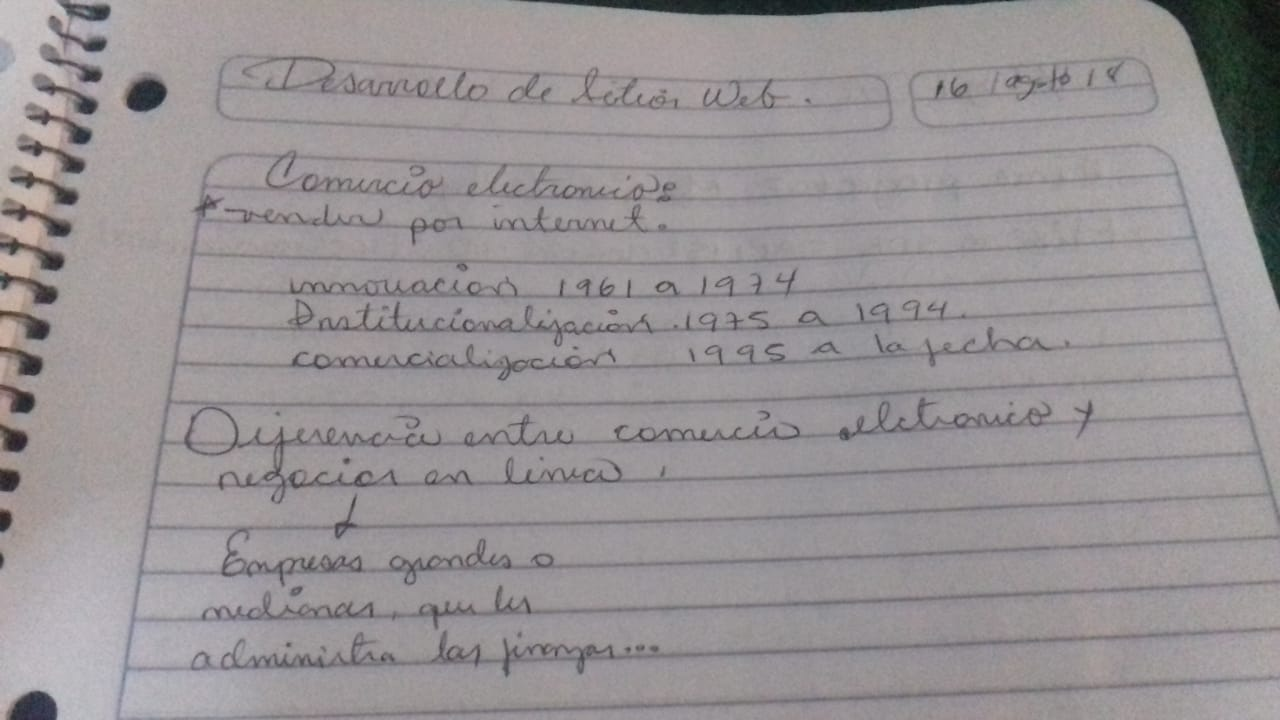 Desarrollo de sitios Web.
16 / agosto / 8
Comercio electronico:
* vender por internet.
innovación 1961 a 1974
Institucionalización. 1975 a 1994.
comercialización 1995 a la fecha.
Diferencia entre comercio electronico y
negocios en linea.
Empresas grandes o
medianas, que les
administra las finanzas...